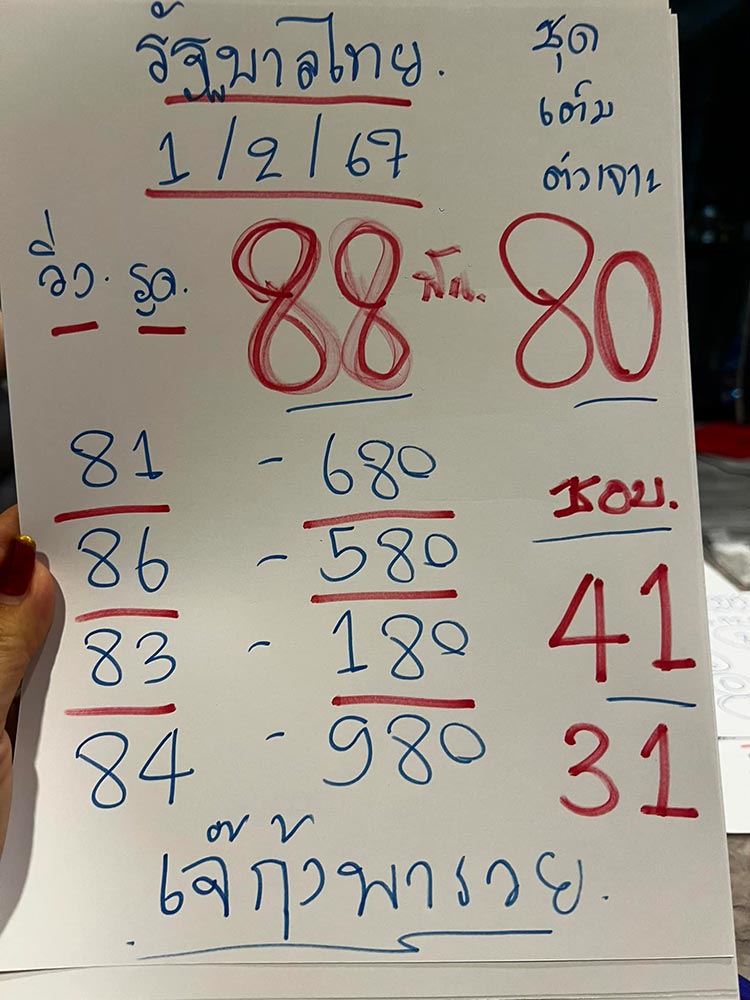 รัฐบาลไทย.
1/2/67
ชุด
เต็ม
ตัวเจาะ
วิ่ง. รูด.
88 ฟัน. 80
81 - 680
86 - 580
83 - 180
84 - 980
ชอบ.
41
31
เจ๊กุ้งพารวย.